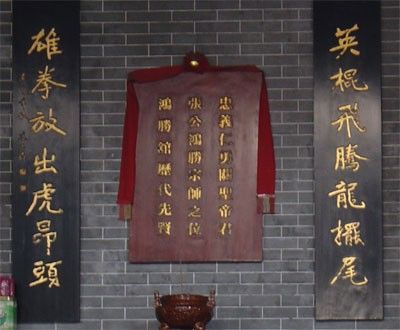 英棍飛騰龍擺尾
忠義仁勇關聖帝君
張公鴻勝宗師之位
鴻勝舘歷代先賢
雄拳放出虎昂頭